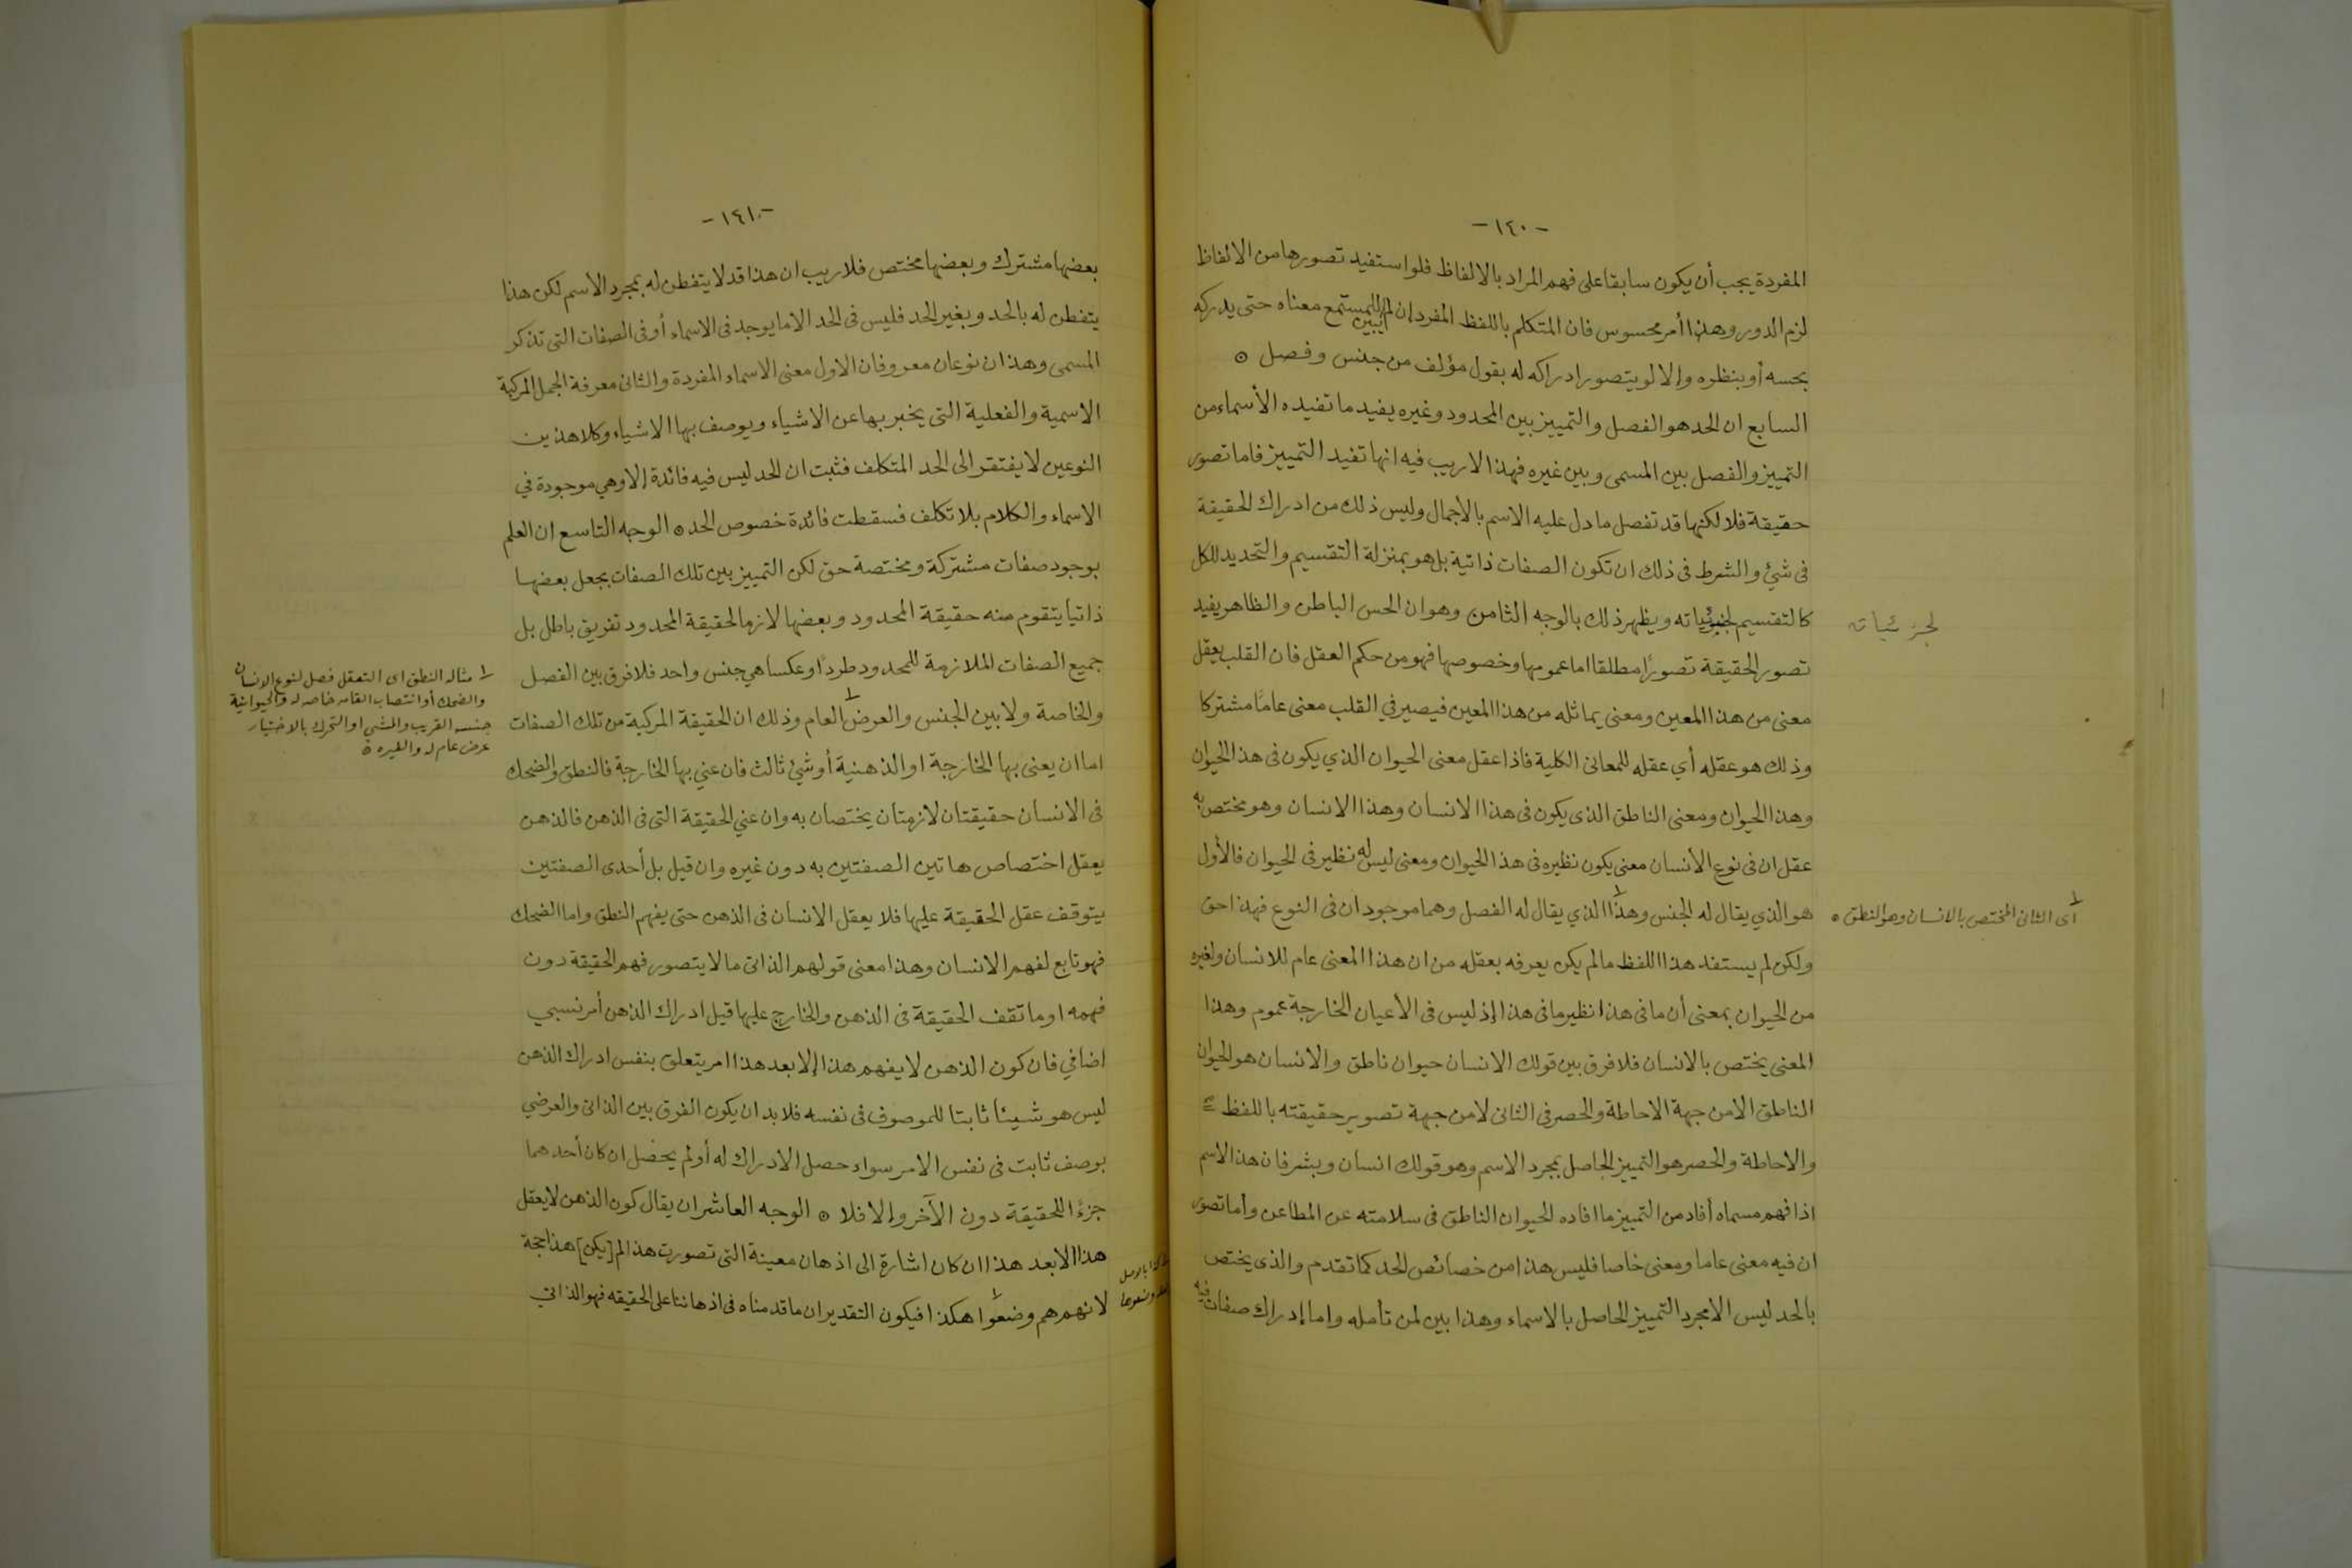 -١٤٠-
المفردة يجب أن يكون سابقا على فهم المراد بالالفاظ فلو استفيد تصورها من الالفاظ
لزم الدور وهذا أمر محسوس فان المتكلم باللفظ المفرد إن لم يبين للمستمع معناه حتى يدركه
بحسه أو بنظره وإلا لو يتصور ادراكه له بقول مؤلف من جنس وفصل ⊙
السابع ان الحد هو الفصل والتمييز بين المحدود وغيره يفيد ما تفيده الأسماء من
التمييز والفصل بين المسمى وبين غيره فهذا لا ريب فيه انها تفيد التمييز فاما تصور
حقيقة فلا لكنها قد تفصل ما دل عليه الاسم بالأجمال وليس ذلك من ادراك الحقيقة
في شئ والشرط في ذلك ان تكون الصفات ذاتية بل هو بمنزلة التقسيم والتحديد للكل
كالتقسيم لجزئياته ويظهر ذلك بالوجه الثامن وهو ان الحس الباطن والظاهر يفيد
لجزئياته
تصور الحقيقة تصورًا مطلقا اما عمومها وخصوصها فهو من حكم العقل فان القلب يعقل
معنى من هذا المعين ومعنى يماثله من هذا المعين فيصير في القلب معنى عامًا مشتركا
وذلك هو عقله أي عقله للمعانى الكلية فاذا عقل معنى الحيوان الذي يكون فى هذا الحيوان
وهذا الحيوان ومعنى الناطق الذى يكون فى هذا الانسان وهذا الانسان وهو مختص به
عقل ان فى نوع الأنسان معنى يكون نظيره فى هذا الحيوان ومعنى ليس له نظير فى الحيوان فالأول
هو الذي يقال له الجنس وهذا١ الذي يقال له الفصل وهما موجودان فى النوع فهذا حق
١ أى الثانى المختص بالانسان وهو النطق ⊙
ولكن لم يستفد هذا اللفظ ما لم يكن يعرفه بعقله من ان هذا المعنى عام للانسان ولغيره
من الحيوان بمعنى أن ما فى هذا نظير ما فى هذا إذ ليس فى الأعيان الخارجة عموم وهذا
المعنى يختص بالانسان فلا فرق بين قولك الانسان حيوان ناطق والانسان هو الحيوان
الناطق الا من جهة الاحاطة والحصر فى الثانى لا من جهة تصوير حقيقته باللفظ
والاحاطة والحصر هو التمييز الحاصل بمجرد الاسم وهو قولك انسان وبشر فان هذا الاسم
اذا فهم مسماه أفاد من التمييز ما افاده الحيوان الناطق فى سلامته عن المطاعن وأما تصور
ان فيه معنى عاما ومعنى خاصا فليس هذا من خصائص الحد كما تقدم والذى يختص
بالحد ليس الا مجرد التمييز الحاصل بالاسماء وهذا بين لمن تأمله واما إدراك صفات فيه
-١٤١-
بعضها مشترك وبعضها مختص فلا ريب ان هذا قد لا يتفطن له بمجرد الاسم لكن هذا
يتفطن له بالحد وبغير الحد فليس فى الحد الا ما يوجد فى الاسماء أو فى الصفات التى تذكر
المسمى وهذان نوعان معروفان الاول معنى الاسماء المفردة والثانى معرفة الجمل المركبة
الاسمية والفعلية التى يخبر بها عن الاشياء ويوصف بها الاشياء وكلا هذين
النوعين لا يفتقر الى الحد المتكلف فثبت ان الحد ليس فيه فائدة إلا وهي موجودة في
الاسماء والكلام بلا تكلف فسقطت فائدة خصوص الحد ⊙ الوجه التاسع ان العلم
بوجود صفات مشتركة ومختصة حق لكن التمييز بين تلك الصفات بجعل بعضها
ذاتيا يتقوم منه حقيقة المحدود وبعضها لازما لحقيقة المحدود تفريق باطل بل
جميع الصفات الملازمة للمحدود طردًا وعكسا هي جنس واحد فلا فرق بين الفصل
والخاصة ولا بين الجنس والعرض١ العام وذلك ان الحقيقة المركبة من تلك الصفات
١ مثاله النطق اى التعقل فصل لنوع الانسان
والضحك أو انتصاب القامه خاصه له والحيوانية
جنسه القريب والمشى او التحرك بالاختيار
عرض عام له ولغيره
اما ان يعنى بها الخارجة او الذهنية أو شئ ثالث فان عني بها الخارجة فالنطق والضحك
فى الانسان حقيقتان لازمتان يختصان به وان عني الحقيقة التى فى الذهن فالذهن
يعقل اختصاص هاتين الصفتين به دون غيره وان قيل بل أحدى الصفتين
يتوقف عقل الحقيقة عليها فلا يعقل الانسان فى الذهن حتى يفهم النطق واما الضحك
فهو تابع لفهم الانسان وهذا معنى قولهم الذاتى ما لا يتصور فهم الحقيقة دون
فهمه او ما تقف الحقيقة فى الذهن والخارج عليها قيل ادراك الذهن أمر نسبي
اضافي فان كون الذهن لا يفهم هذا إلا بعد هذا امر يتعلق بنفس ادراك الذهن
ليس هو شيئا ثابتا للموصوف فى نفسه فلا بد ان يكون الفرق بين الذاتى والعرضي
بوصف ثابت فى نفس الامر سواء حصل الادراك له أو لم يحصل ان كان أحدهما
جزءًا للحقيقة دون الآخر وإلا فلا ⊙ الوجه العاشر ان يقال كون الذهن لا يعقل
هذا الا بعد هذا ان كان اشارة الى اذهان معينة التى تصورت هذا لم [يكن] هذا حجة
لانهم هم وضعوا١ هكذا فيكون التقدير ان ما قدمناه فى اذهاننا على الحقيقه فهو الذاتي
بالاصل
وضعوها